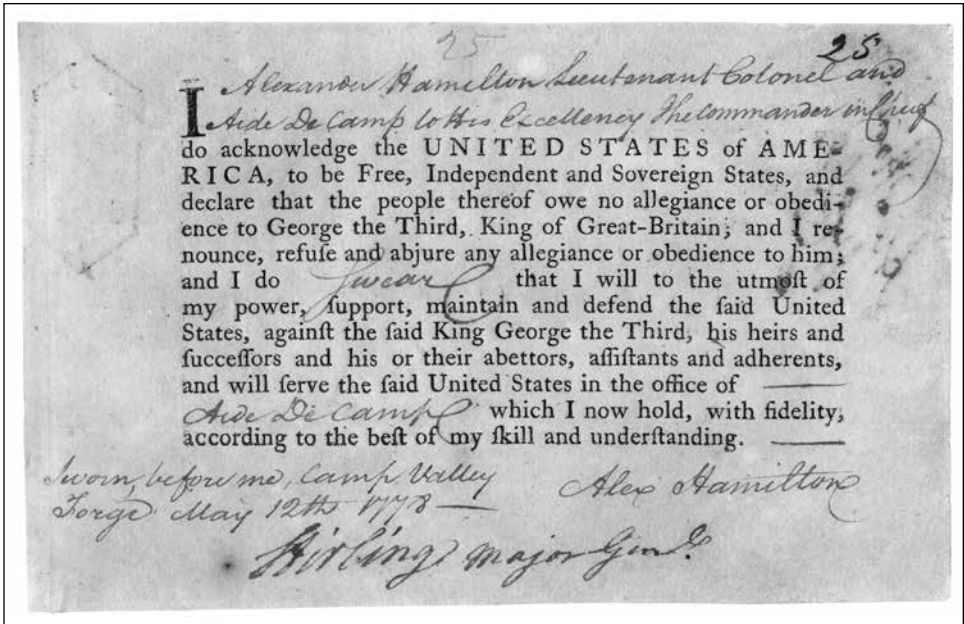 25 25
I Alexander Hamilton Lieutenant Colonel and
Aide De Camp to His Excellency The Commander in Chief
do acknowledge the UNITED STATES of AME-
RICA, to be Free, Independent and Sovereign States, and
declare that the people thereof owe no allegiance or obedi-
ence to George the Third, King of Great-Britain; and I re-
nounce, refuſe and abjure any allegiance or obedience to him;
and I do Swear that I will to the utmoſt of
my power, ſupport, maintain and defend the ſaid United
States, againſt the ſaid King George the Third, his heirs and
ſucceſſors and his or their abettors, aſſiſtants and adherents,
and will ſerve the ſaid United States in the office of
Aide De Camp which I now hold, with fidelity,
according to the beſt of my ſkill and underſtanding.
Sworn before me, Camp Valley
Forge May 12th 1778 — Alex Hamilton
Stirling Major Genl.